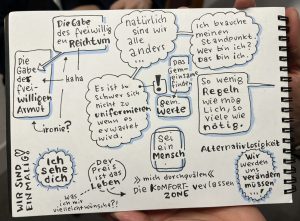 Die Gabe
des freiwillig
en Reichtum
natürlich
sind wir
alle
anders...
Ich brauche
meinen
Standpunkt.
Wer bin ich?
Das bin ich.
Die
Gabe
der
frei-
willigen
Armut
haha
ironie?
Es ist so
schwer sich
nicht zu
uniformieren
wenn es
erwartet
wird.
Das
Gem-
einsame
finden
!
Gem.
Werte
So wenig
Regeln
wie mög
lich, so
viele wie
nötig.
Sei
ein
Mensch
WIR SIND
EINMALIG!
Ich
sehe
dich
Der
Preis ist
das
Leben
was
ich mir
vielleicht wünsche?!
» mich durchquälen «
Die KOMFORT-
ZONE
verlassen
Alternativlosigkeit
Wir
werden
uns
verändern
müssen!